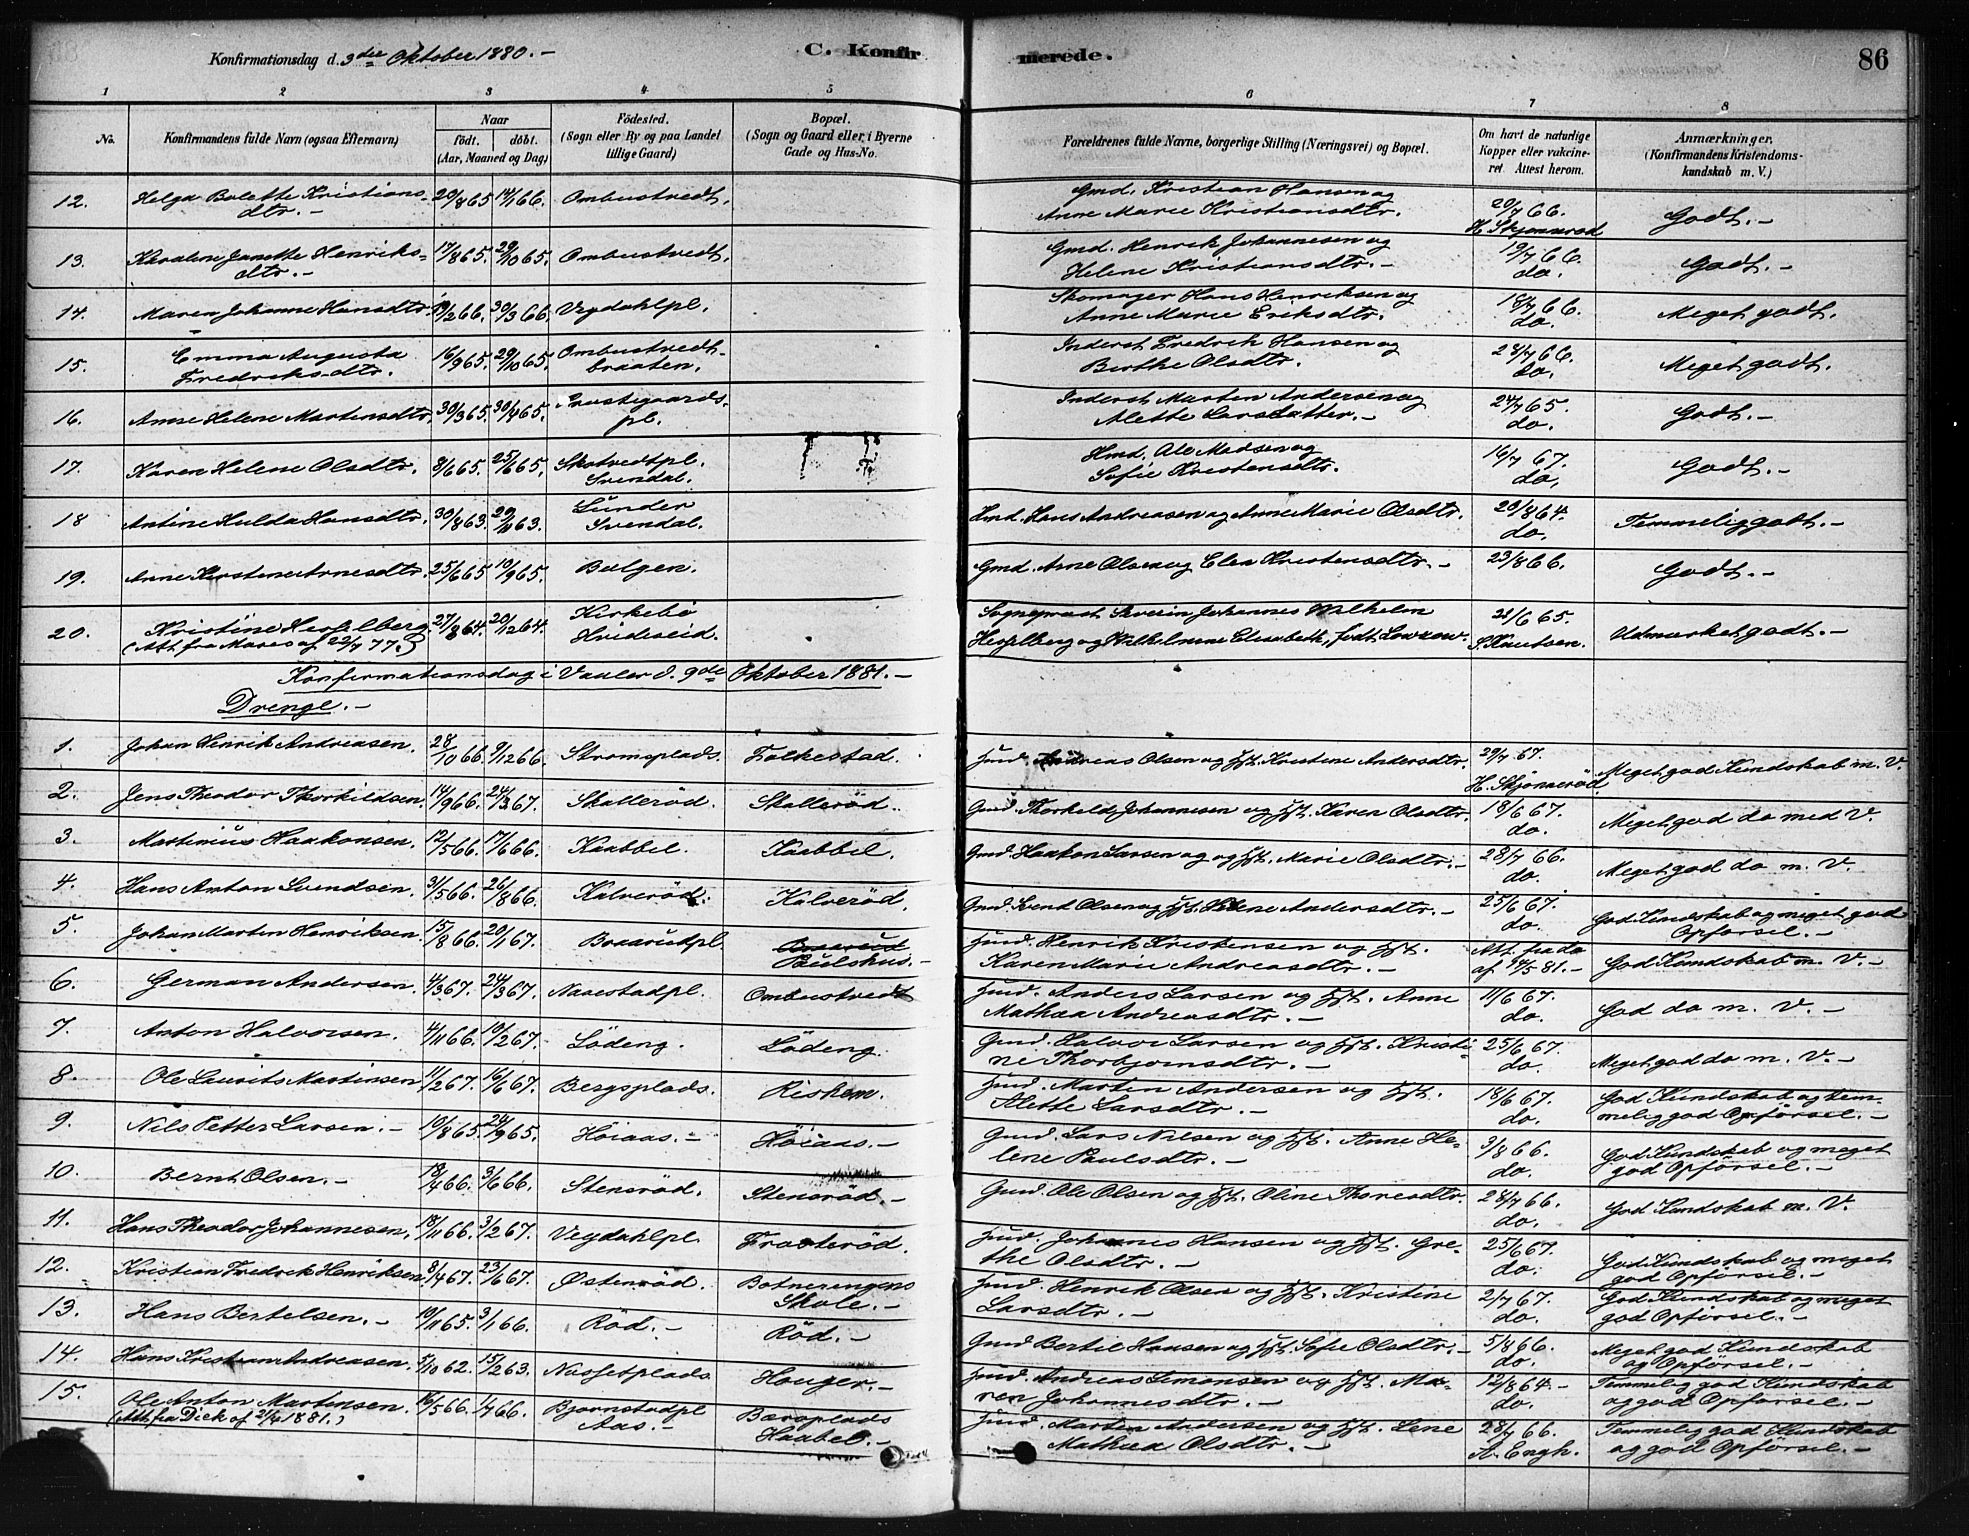 Konfirmationsdag d. 3die Oktober 1880. –
C. Konfirmerede.
86
1 2 3 4 5 6 7 8
No. Konfirmandens fulde Navn (ogsaa Efternavn) Naar födt. döbt. (Aar, Maaned og Dag) Födested. (Sogn eller By og paa Landet tillige Gaard) Bopæl. (Sogn og Gaard eller i Byerne Gade og Hus-No. Forældrenes fulde Navne, borgerlige Stilling (Næringsvei) og Bopæl. Om havt de naturlige Kopper eller vakcineret Attest herom. Anmærkninger. (Konfirmandens Kristendomskundskab m. V.)
12. Helga Bolette Kristiansdtr. – 20/8 65 14/1 66. Ombustvedt. Gmd. Kristian Hansen og Anne Marie Kristiansdtr. 20/7 66. H. Skjönneröd Godt. –
13. Karalene Janette Henriksdtr. – 17/8 65. 29/10 65. Ombustvedt. Gmd. Henrik Johannesen og Helene Kristiansdtr. – 19/7 66. do. Godt. –
14. Maren Johanne Hansdtr. 19/2 66. 30/3 66. Vejdahlpl. Skomager Hans Henriksen og Anne Marie Eriksdtr. 18/7 66. do. Meget godt.
15. Emma Augusta Fredriksdtr. 16/9 65. 29/10 65. Ombustvedtbraaten. Inderst Fredrik Hansen og Berthe Olsdtr. 24/7 66. do. Meget godt.
16. Anne Helene Martensdtr. 30/3 65. 30/4 65. Prestegaardspl. Inderst Marten Andersen og Alette Larsdatter. – 24/7 65. do. Godt. –
17. Karen Helene Olsdtr. 9/6 65. 25/6 65. Skotvedtpl. Svendal. Hmd. Ole Madsen og Sofie Kristensdtr. 16/7 67. do. Godt. –
18 Antine Hulda Hansdtr. 30/8 63. 29/11 63. Lunder Svendal. Hmd. Hans Andreasen og Anne Marie Olsdtr. 20/8 64. do. Temmelig godt. –
19. Anne Kirstine Arnesdtr. 25/6 65 10/9 65. Bulgen. Gmd. Arne Olsen og Elen Kristensdtr. – 23/8 66. Godt. –
20. Kristine Hesselberg (Att. fra Moss af 22/7 77.) 27/8 64. 20/12 64. Kirkebö Hvideseid. Sogneprest Severin Johannes Wilhelm Hesselberg og Wilhelmine Elisabeth, födt Lowzow. 21/6 65. S. Knutsen. Udmærket godt. –
Konfirmationsdag i Vaaler d. 9de Oktober 1881. –
Drenge. –
1. Johan Henrik Andreasen. 28/10 66. 9/12 66. Stromsplads. Folkestad. Husd. Andreas Olsen og Hst. Kristine Andersdtr. 29/7 67. H. Skjönneröd. Meget god Kundskab m. V.
2. Jens Theodor Thorkildsen. 14/9 66. 24/3 67. Skalleröd. Skalleröd. Gmd. Thorkild Johannesen og Hst. Karen Olsdtr. 18/6 67. do. Meget god do med V.
3. Martinius Haakonsen. 12/5 66. 17/6 66. Kaabbel. Kaabbel. Gmd. Haakon Larsen og Hst. Marie Olsdtr. – 28/7 66. do. Meget god do m. V.
4. Hans Anton Svendsen. 31/5 66. 26/8 66. Kalveröd. Kalveröd. Gmd. Svend Olsen og Hst. Helene Andersdtr. – 25/6 67. do. God Kundskab og meget god Opförsel. –
5. Johan Martin Henriksen. 15/8 66. 20/1 67. Braarudpl. Braarud Paulshus. – Husd. Henrik Kristensen og Hst. Karen Marie Andreasdtr. – Att. fra do af 14/5 81. – God Kundskab m. V. –
6. German Andersen. 4/3 67. 24/3 67. Naaestadpl. Ombustvedt Husd. Anders Larsen og Hst. Anne Mathea Andreasdtr. – 11/6 67. do. God do m. V. –
7. Anton Halvorsen. 4/11 66. 10/2 67. Lödeng. Lödeng. Gmd. Halvor Larsen og Hst. Kristine Thorbjornsdtr. – 25/6 67. do. Meget god do m. V. –
8. Ole Laurits Martinsen 11/2 67. 16/6 67. Bergsplads. Riskem. Husd. Martin Andersen og Hst. Alette Larsdtr. – 18/6 67. do. God Kundskab og temmelig god Opförsel. –
9. Nils Petter Larsen. – 10/8 65. 24/9 65. Höiaas. – Höiaas. – Gmd. Lars Nilsen og Hst. Anne Helene Paulsdtr. – 3/8 66. do. God Kundskab og meget god Opförsel. –
10. Bernt Olsen. – 18/4 66. 3/6 66. Stensröd. Stensröd. – Gmd. Ole Olsen og Hst. Oline Thoresdtr. 28/7 66. do. God Kundskab m. V.
11. Hans Theodor Johannesen. 18/11 66. 3/2 67. Vejdahlpl. Frosteröd. Husd. Johannes Hansen og Hst. Grethe Olsdtr. – 25/6 67. do. God Kundskab og meget god Opförsel. –
12. Kristian Fredrik Henriksen. 8/4 67. 23/6 67. Østenröd. Botneringens Skole. – Husd. Henrik Olsen og Hst. Kristine Larsdtr. – 2/7 67. do. God Kundskab og meget god Opförsel. –
13. Hans Bertelsen. – 19/11 65. 3/1 66. Röd. – Röd. – Gmd Bertil Hansen og Hst. Sofie Olsdtr. – 5/8 66. do. Meget god Kundskab og Opförsel. –
14. Hans Kristian Andreasen. 5/10 62. 15/2 63. Nassetplads. Houger. – Husd. Andreas Simonsen og Hst. Maren Johannesdtr. – 12/8 64. – do. Temmelig god Kundskab og god Opförsel. –
15. Ole Anton Martensen. (Att. fra Dick af 2/4 1881.) 16/5 66. 1/4 66. Bjornstadpl Aas. – Bæroplads Kaabel. – Husd. Marten Andersen og Hst. Lene Mathea Olsdtr. – 28/7 66. A. Engh. Temmelig god Kundskab og god Opförsel. –